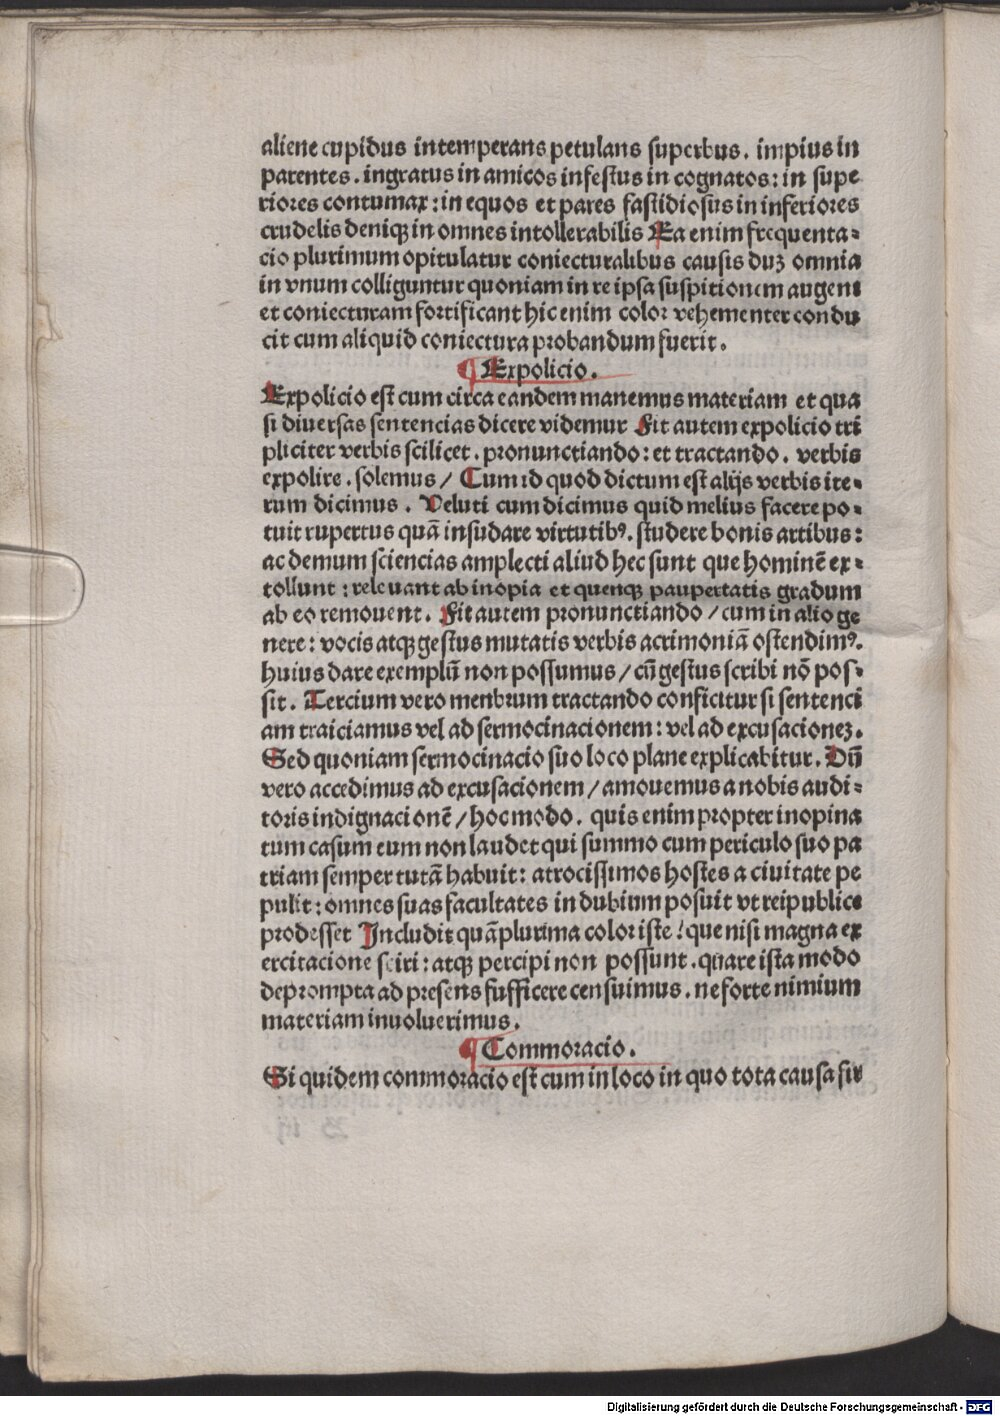 aliene cupidus intemperans petulans superbus. impius in
parentes. ingratus in amicos infestus in cognatos: in supe
riores contumax: in equos et pares fastidiosus in inferiores
crudelis deniqꝫ in omnes intollerabilis Ea enim frequenta-
cio plurimum opitulatur coniecturalibus causis duꝫ omnia
in vnum colliguntur quoniam in re ipsa suspitionem augent
et coniecturam fortificant hic enim color vehementer condu
cit cum aliquid coniectura probandum fuerit.
¶ Expolicio.
Expolicio est cum circa eandem manemus materiam et qua
si diuersas sentencias dicere videmur Fit autem expolicio tri
pliciter verbis scilicet. pronunctiando: et tractando. verbis
expolire. solemus/ Cum id quod dictum est alijs verbis ite-
rum dicimus. Veluti cum dicimus quid melius facere po-
tuit rupertus quā insudare virtutibꝰ. studere bonis artibus:
ac demum sciencias amplecti aliud hec sunt que hominē ex-
tollunt: releuant ab inopia et quenqꝫ paupertatis gradum
ab eo remouent. Fit autem pronunctiando/ cum in alio ge
nere: vocis atqꝫ gestus mutatis verbis acrimoniā ostendimꝰ.
huius dare exemplū non possumus/ cū gestus scribi nō pos-
sit. Tercium vero menbrum tractando conficitur si sentenci
am traiciamus vel ad sermocinacionem: vel ad excusacioneꝫ.
Sed quoniam sermocinacio suo loco plane explicabitur. Dū
vero accedimus ad excusacionem/ amouemus a nobis audi-
toris indignacionē/ hoc modo. quis enim propter inopina
tum casum eum non laudet qui summo cum periculo suo pa
triam semper tutā habuit: atrocissimos hostes a ciuitate pe
pulit: omnes suas facultates in dubium posuit vt reipublice
prodesset Includit quāplurima color iste! que nisi magna ex
ercitacione sciri: atqꝫ percipi non possunt. quare ista modo
deprompta ad presens sufficere censuimus. ne forte nimium
materiam inuoluerimus.
¶ Commoracio.
Si quidem commoracio est cum in loco in quo tota causa sit
Digitalisierung gefördert durch die Deutsche Forschungsgemeinschaft - DFG